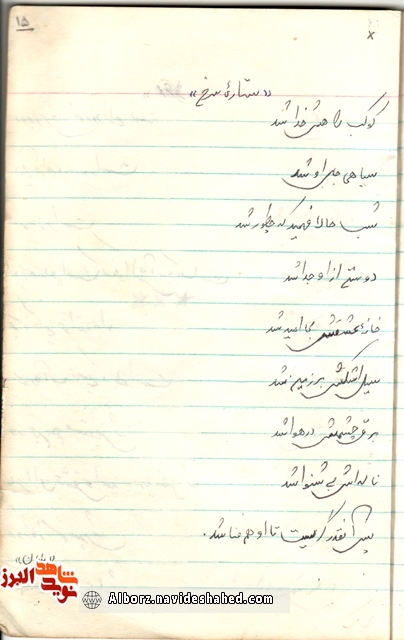 ۱۵
«ستارهٔ سرخ»
کوکب راهش خدا شد
سیاهی جبر او شد
شب حالا فهمید که چطور شد
دوستی از او جدا شد
خانهٔ عشقش نا امید شد
سیل اشکش بر زمین شد
برق چشمش در هوا شد
ناله‌اش بی شنوا شد
پس آنقدر گریست تا او هم فنا شد.
نوید شاهد البرز
Alborz.navideshahed.com